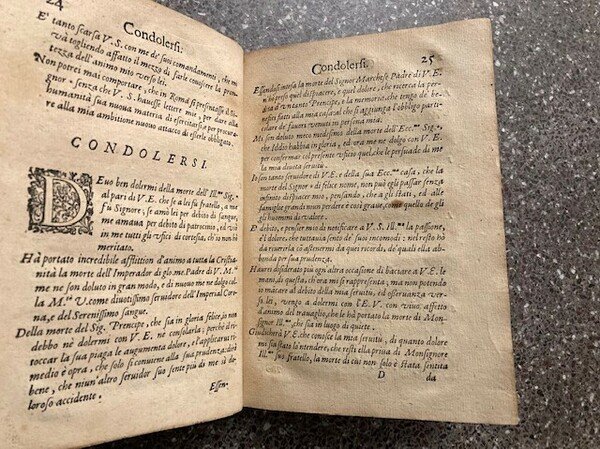 24
Condolersi.
E' tanto scarsa V. S. con me de' suoi comandamenti, che mi
và togliendo affatto il mezzo di farle conoscere la prontezza
tezza dell'animo mio verso lei.
Non potrei mai comportare, che in Roma si presentasse il Signor
gnor , senza che V. S. hauesse lettere mie, per dare alla
humanità sua nuoua materia di esercitarsi, e per procurare
re alla mia ambitione nuouo attacco di esserle obbligato.
CONDOLERSI.
DEuo ben dolermi della morte dell'Ill.mo Sig.
al pari di V.E. che se a lei fù fratello, a me
fu Signore, se amò lei per debito di sangue,
me amaua per debito di patrocinio, ed vsò
in me tutti gli vfici di cortesia, ch'io non hò
meritato.
Hà portato incredibile afflittion d'animo a tutta la Christianità
nità la morte dell'Imperador di glo.me. Padre di V. M.tà
me ne son doluto in gran modo, e di nuouo me ne dolgo cal
la M.tà V. come diuotissimo seruidore dell'Imperial Corona,
na, e del Serenissimo sangue.
Della morte del Sig. Prencipe, che sia in gloria felice, io non
debbo nè dolermi con V. E. nè consolarla; perchè il ritoccar
toccar la sua piaga le augumenta dolore, e l'applicarui
medio è opra, che solo si conuiene alla sua prudenza; dirò
bene, che niun'altro seruidor suo sente piu di me il doloroso
loroso accidente.
Essen-
Condolersi. 25
Essendosi intesa la morte del Signor Marchese Padre di V. E.
n'hò preso quel dispiacere, e quel dolore, che ricerca la perdita
sa d'vn tanto Prencipe, e la memoria, che tengo de' beneficij
nefici fatti alla mia casa; al chè si aggiunga l'obbligo particolare
lare de' fauori venuti in persona mia.
Mi son doluto meco medesimo della morte dell'Ecc.mo Sig.
che Iddio habbia in gloria, ed ora me ne dolgo con V.E.
per confermar col presente vficio quel, che le persuade di me
la mia diuota seruitù.
Io son tanto seruidore di V. E. e della sua Ecc.ma casa, che la
morte del Signor di felice nome, non può egli passar senza
infinito dispiacer mio, pensando, che a gli stati, ed alle
famiglie gran non si può perdere cosi graue, come quello de gli
gli huomini di valore.
E' debito, e pensier mio di notificare a V. S. Ill.ma la passione,
e'l dolore, che tuttauia sento de' suoi incomodi; nel resto hò
da riuerirla cò astenermi da quei ricordi, de' quali ella abbonda
per sua prudenza.
Haurei disiderato piu ogni altra occasione di baciare a V. E. le
mani, di questa, ch'ora mi si rappresenta; ma non potendo
io mancare al debito della mia seruitù, ed osseruanza verso
so lei, vengo a dolermi con l'E. V. con viuo, altissimo
animo del trauaglio, che le hà portato la morte di Monsignor
signor Ill.mo, che sia in luogo di quiete.
Giudicherà V. E. che conosce la mia seruitù, di quanto dolore
mi sia stato lo'ntendere, che resti ella priua di Monsignore
Ill.mo suo fratello, la morte di cui non solo è stata sentita
D da